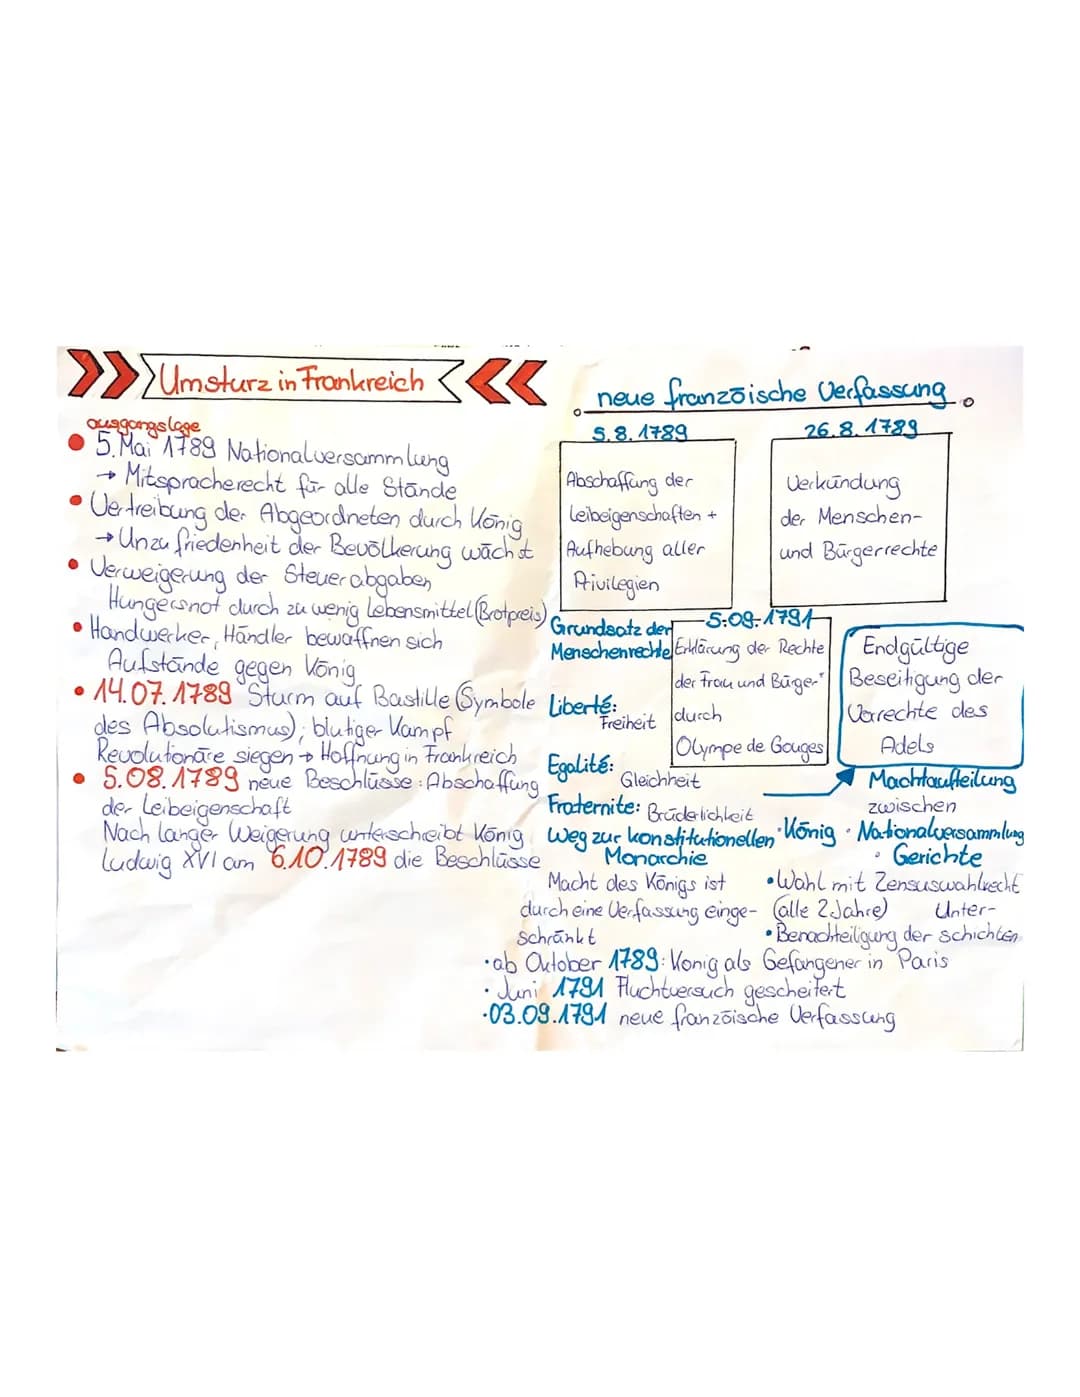 Umsturz in Frankreich
ausgangslage
• 5. Mai 1789 Nationalversammlung
→ Mitspracherecht für alle Stände
• Vertreibung der Abgeordneten durch König
→ Unzufriedenheit der Bevölkerung wächst
• Verweigerung der Steuerabgaben,
Hungersnot durch zu wenig Lebensmittel (Brotpreis)
• Handwerker, Händler bewaffnen sich
Aufstände gegen König
• 14.07.1789 Sturm auf Bastille (Symbole
des Absolutismus); blutiger Kampf
Revolutionäre siegen → Hoffnung in Frankreich
• 5.08.1789 neue Beschlüsse: Abschaffung
der Leibeigenschaft
Nach langer Weigerung unterschreibt König
Ludwig XVI am 6.10.1789 die Beschlüsse
neue französische Verfassung
5.8.1789
Abschaffung der
Leibeigenschaften +
Aufhebung aller
Privilegien
26.8.1789
Verkündung
der Menschen-
und Bürgerrechte
Grundsatz der
Menschenrechte
Liberté:
Freiheit
Egalité:
Gleichheit
Fraternite: Brüderlichkeit
5.09.1791
Erklärung der Rechte
der Frau und Bürger"
durch
Olympe de Gouges
Endgültige
Beseitigung der
Vorrechte des
Adels
Machtaufteilung
zwischen
• König • Nationalversammlung
• Gerichte
Weg zur konstitutionellen
Monarchie
Macht des Königs ist
durch eine Verfassung einge-
schränkt
• Wahl mit Zensuswahlrecht
(alle 2 Jahre)
• Benachteiligung der Unter-
schichten
• ab Oktober 1789: König als Gefangener in Paris
• Juni 1791 Fluchtversuch gescheitert
• 03.09.1791 neue französische Verfassung